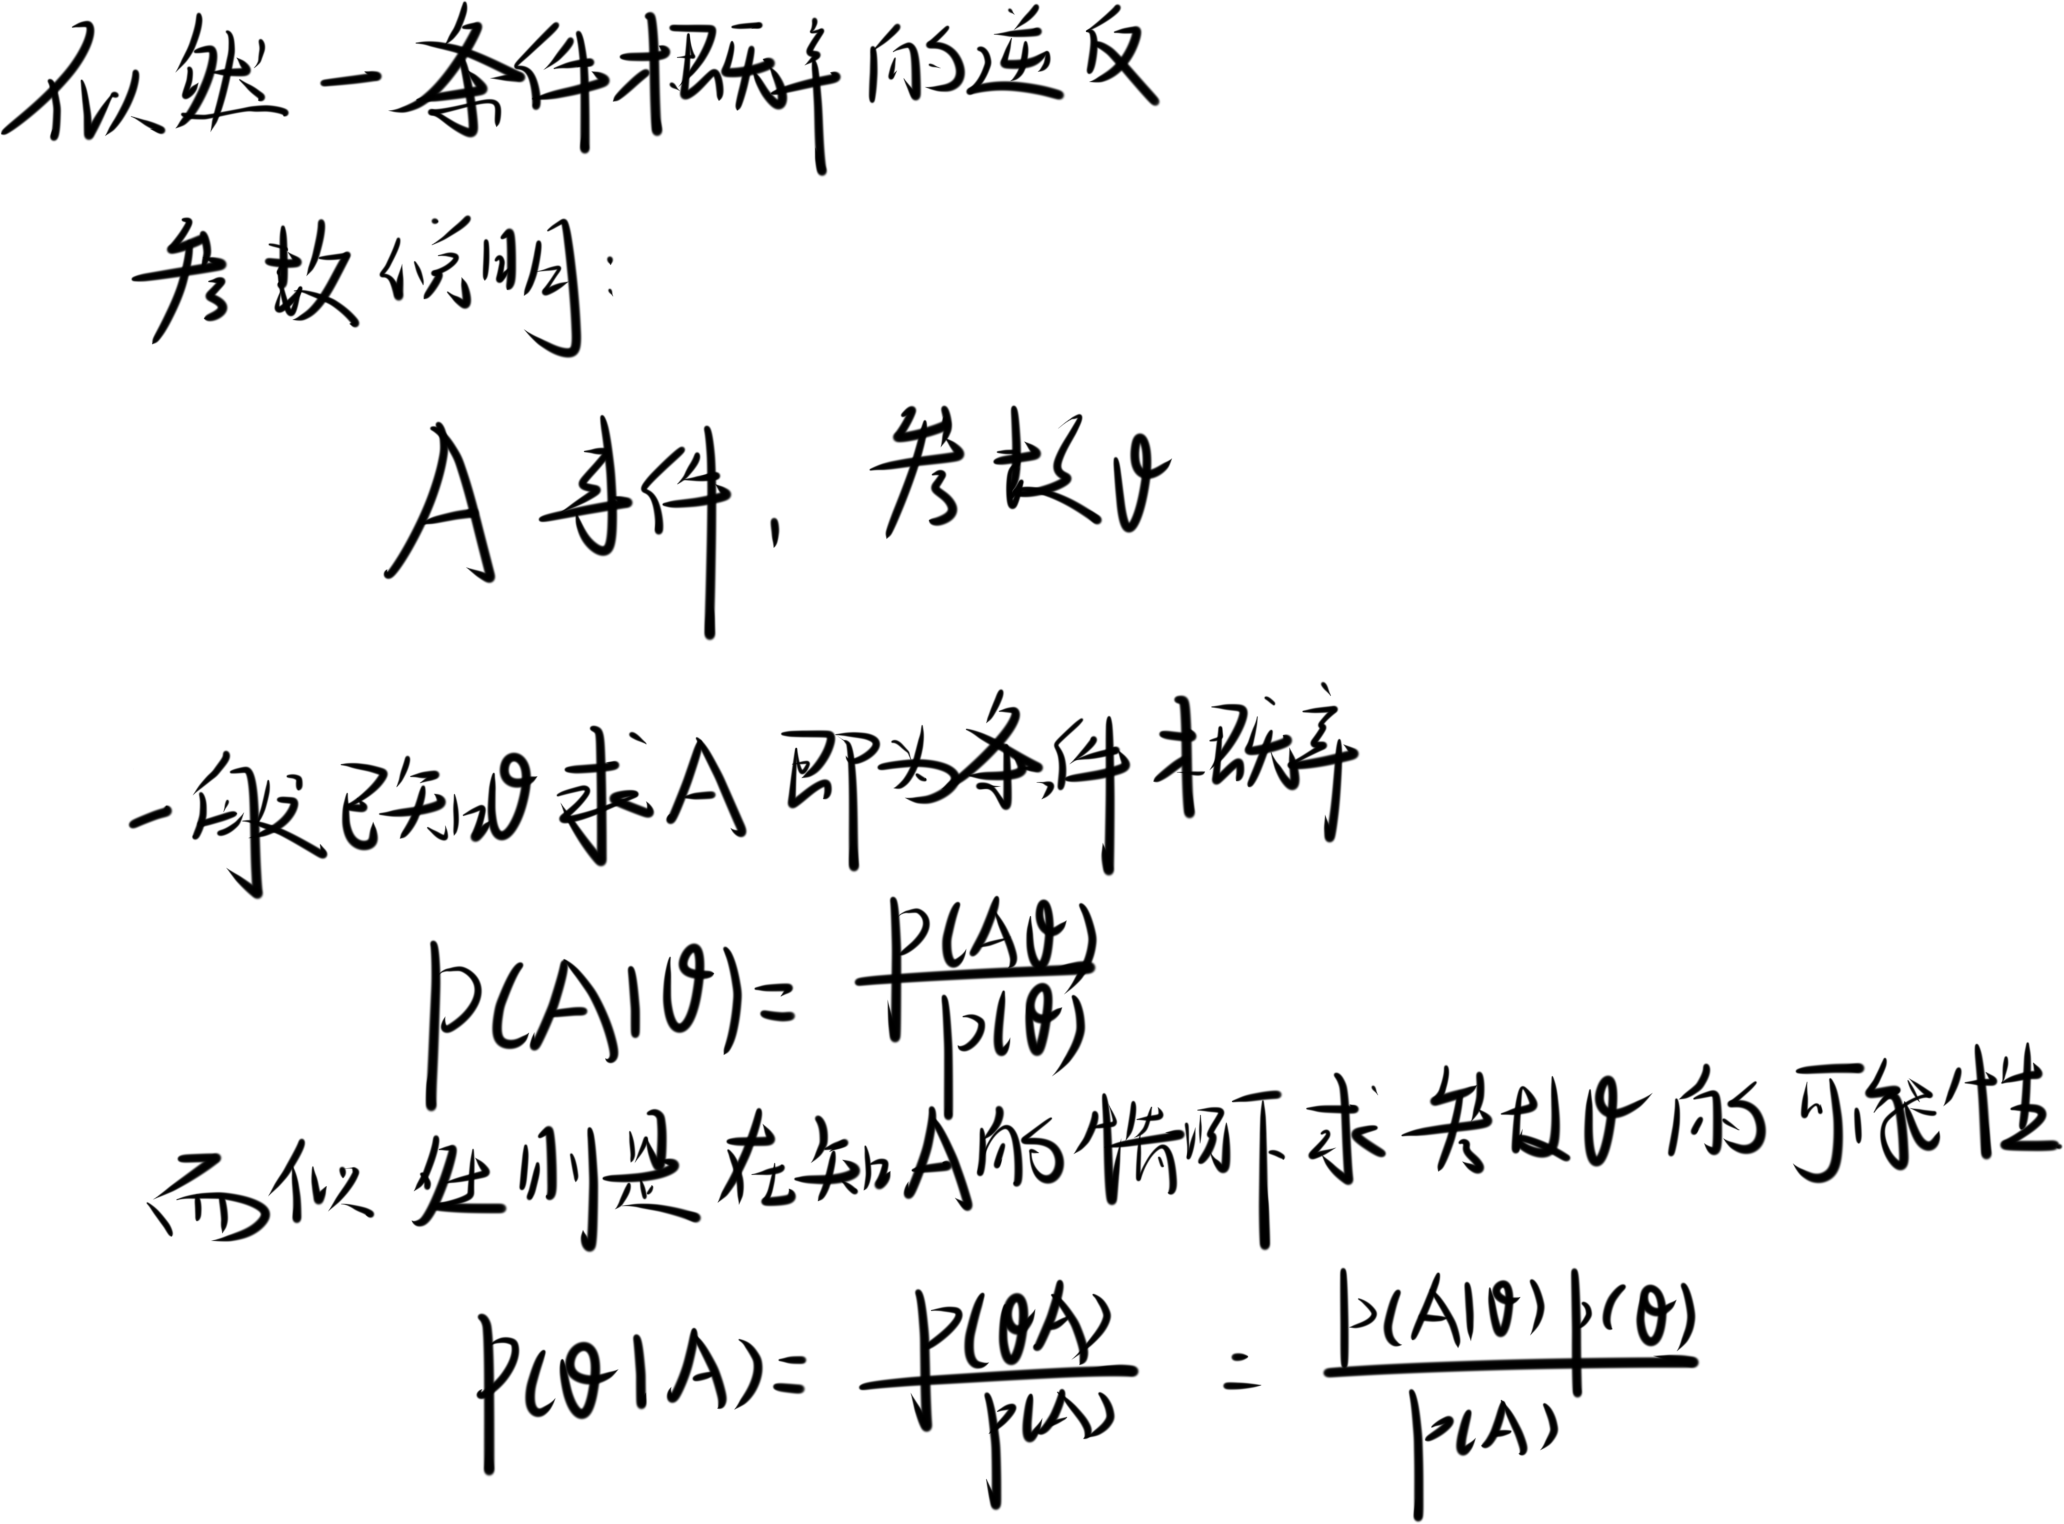 似然一条件概率的逆反
参数说明:
A事件, 参数θ
一般已知θ求A即为条件概率
p(A|θ)= p(Aθ) / p(θ)
而似然则是在知A的情况下求参数θ的可能性
p(θ|A)= p(θA) / p(A) = p(A|θ)p(θ) / p(A)